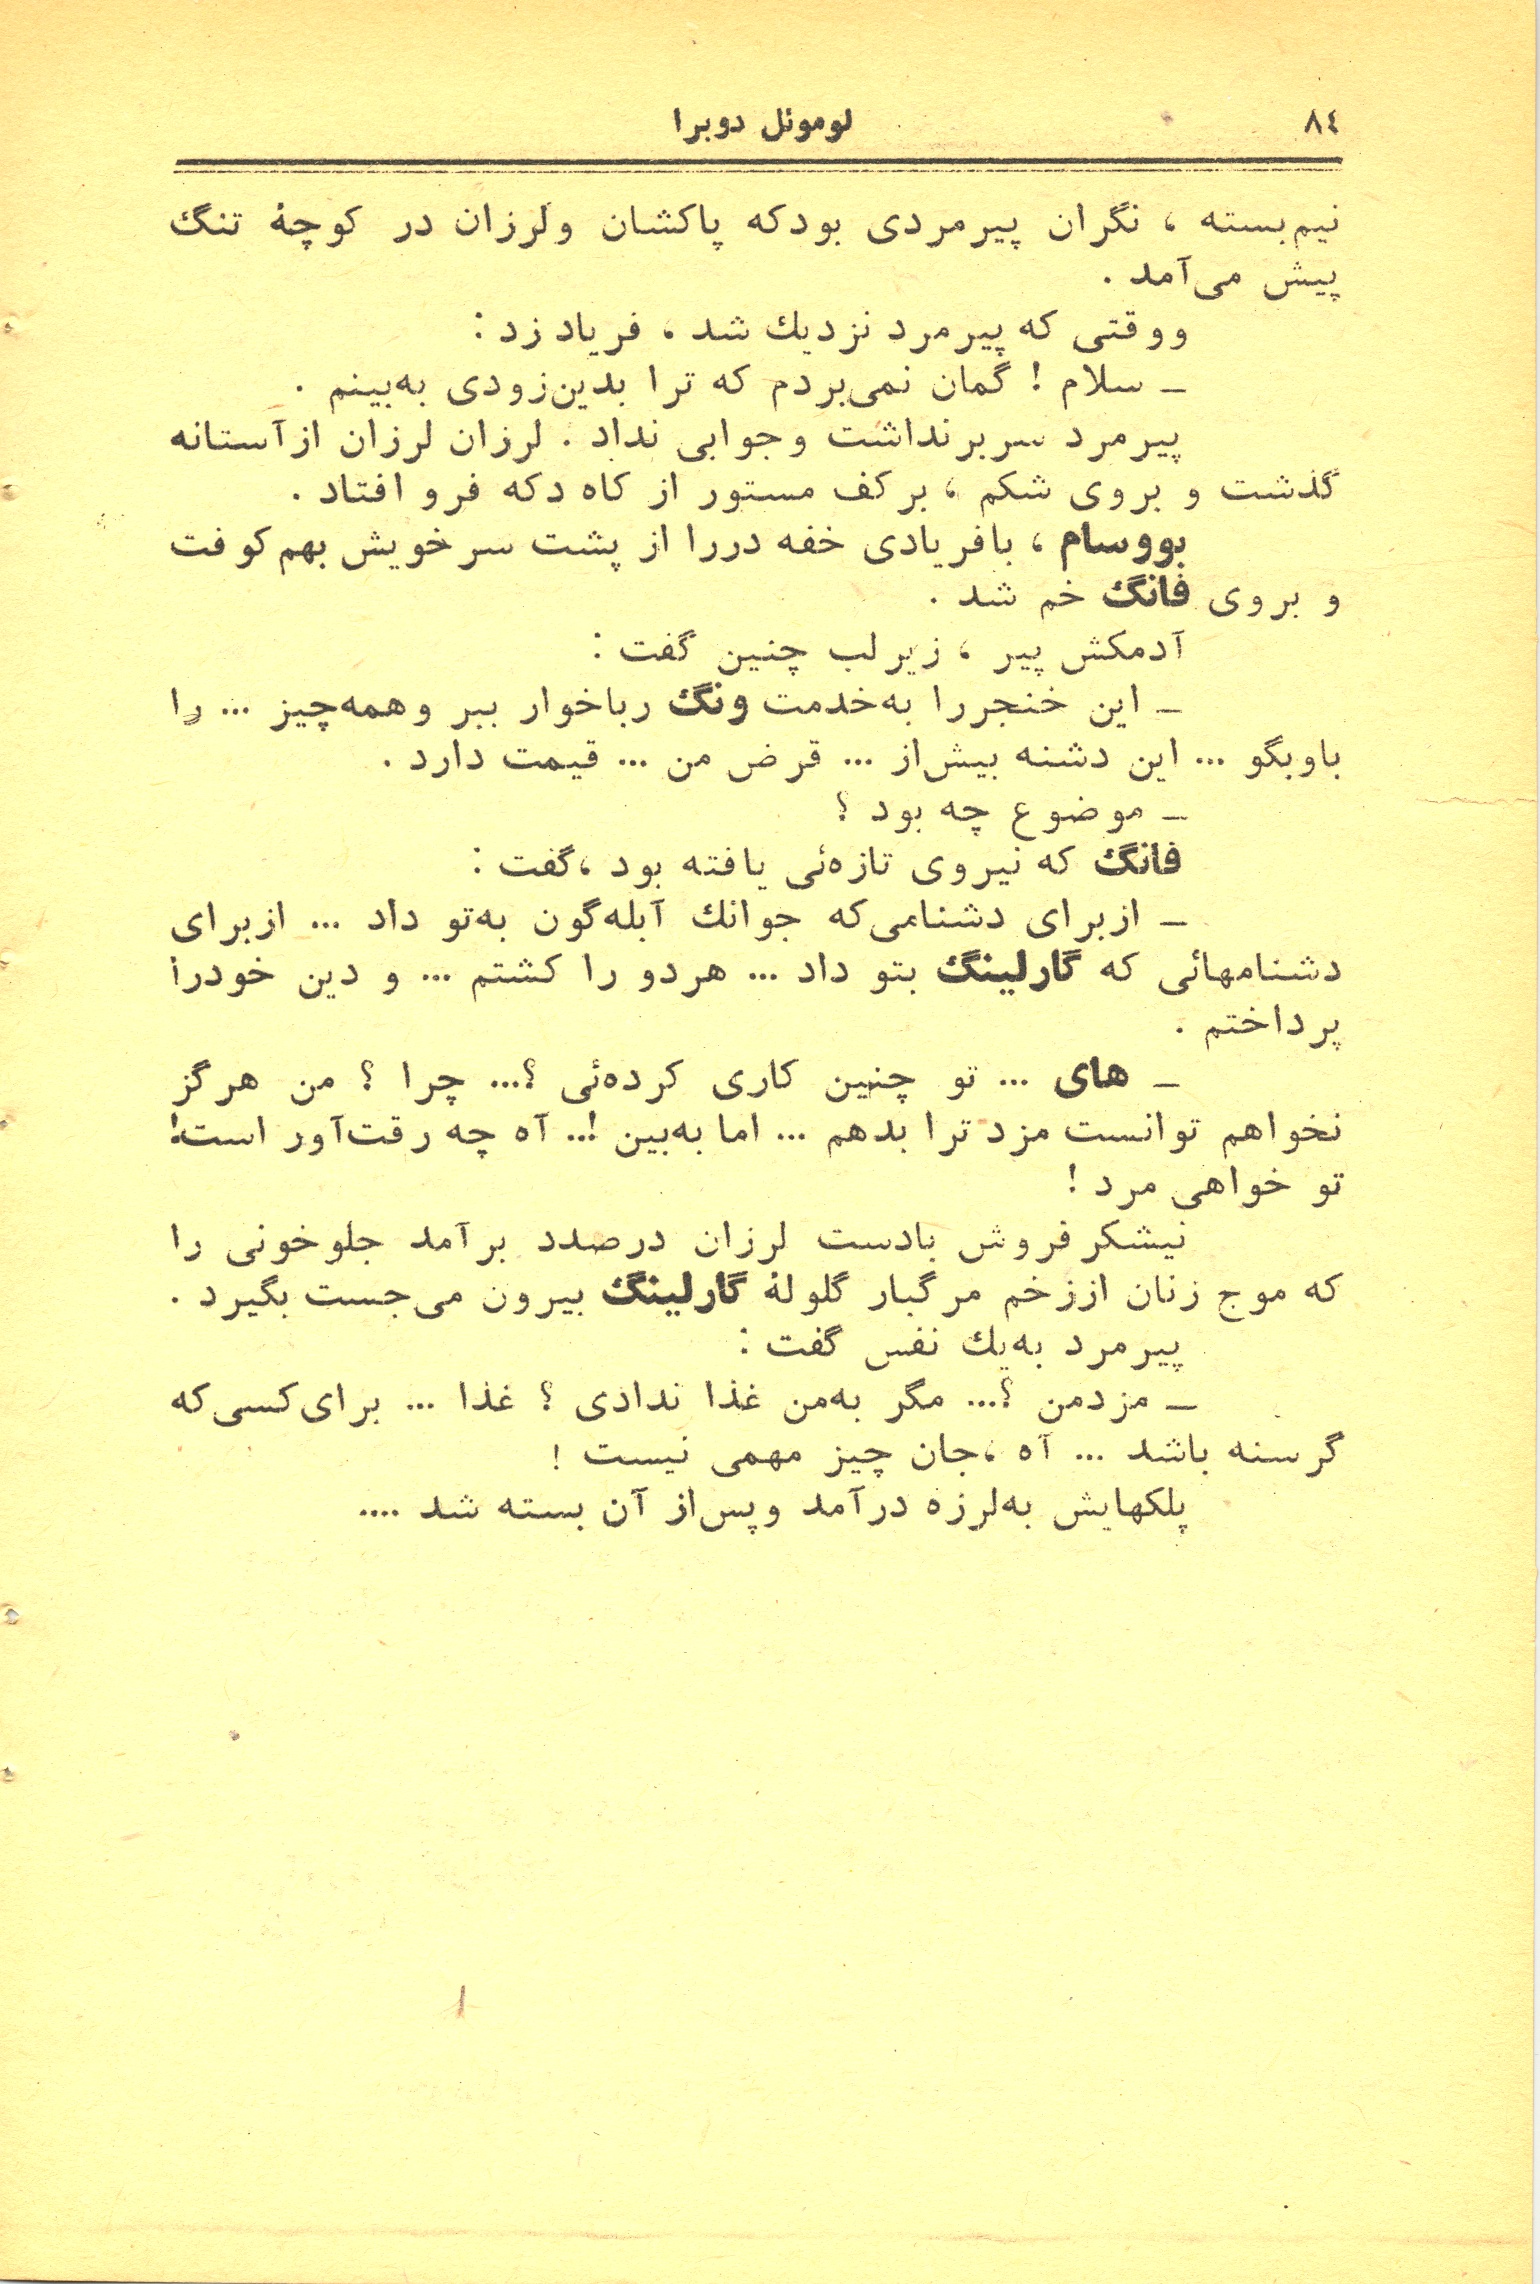 ٨٤
لوموئل دوبرا
نیم‌بسته ، نگران پیرمردی بودکه پاکشان ولرزان در کوچهٔ تنگ
پیش می‌آمد .
ووقتی که پیرمرد نزدیك شد ، فریاد زد :
ــ سلام ! گمان نمی‌بردم که ترا بدین‌زودی به‌بینم .
پیرمرد سربرنداشت وجوابی نداد . لرزان لرزان ازآستانه
گذشت و بروی شکم ، برکف مستور از کاه دکه فرو افتاد .
بووسام ، بافریادی خفه دررا از پشت سرخویش بهم‌کوفت
و بروی فانگ خم شد .
آدمکش پیر ، زیرلب چنین گفت :
ــ این خنجررا به‌خدمت ونگ رباخوار ببر وهمه‌چیز ... را
باوبگو ... این دشنه بیش‌از ... قرض من ... قیمت دارد .
ــ موضوع چه بود ؟
فانگ که نیروی تازه‌ئی یافته بود ،گفت :
ــ ازبرای دشنامی‌که جوانك آبله‌گون به‌تو داد ... ازبرای
دشنامهائی که گارلینگ بتو داد ... هردو را کشتم ... و دین خودرا
پرداختم .
ــ های ... تو چنین کاری کرده‌ئی ؟... چرا ؟ من هرگز
نخواهم توانست مزد ترا بدهم ... اما به‌بین !.. آه چه رقت‌آور است!
تو خواهی مرد !
نیشکرفروش بادست لرزان درصدد برآمد جلوخونی را
که موج زنان اززخم مرگبار گلولهٔ گارلینگ بیرون می‌جست بگیرد .
پیرمرد به‌یك نفس گفت :
ــ مزدمن ؟... مگر به‌من غذا ندادی ؟ غذا ... برای‌کسی‌که
گرسنه باشد ... آه ،جان چیز مهمی نیست !
پلکهایش به‌لرزه درآمد وپس‌از آن بسته شد ....